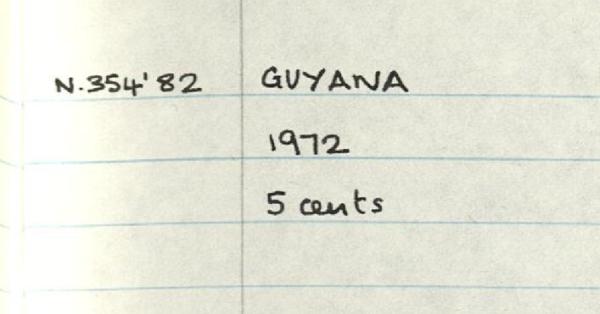 N.354'82 GUYANA
1972
5 cents